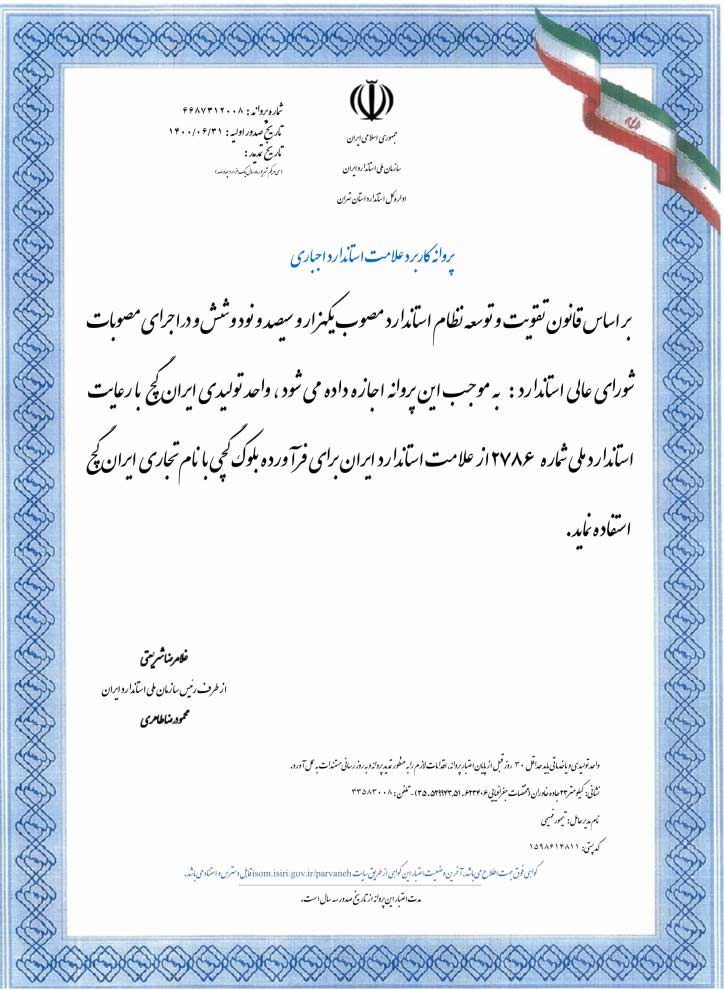 جمهوری اسلامی ایران
سازمان ملی استاندارد ایران
اداره کل استاندارد استان تهران
شماره پروانه : ۶۶۸۷۳۱۲۰۰۸
تاریخ صدور اولیه : ۱۴۰۰/۰۶/۳۱
تاریخ تمدید :
(سی و یکم شهریور ماه سال یک هزار و چهارصد)
پروانه کاربرد علامت استاندارد اجباری
بر اساس قانون تقویت و توسعه نظام استاندارد مصوب یکهزار و سیصد و نود و شش و در اجرای مصوبات
شورای عالی استاندارد : به موجب این پروانه اجازه داده می شود ، واحد تولیدی ایران گچ با رعایت
استاندارد ملی شماره ۲۷۸۶ از علامت استاندارد ایران برای فرآورده بلوک گچی با نام تجاری ایران گچ
استفاده نماید.
غلامرضا شریعتی
از طرف رئیس سازمان ملی استاندارد ایران
محمودرضا طاهری
واحد تولیدی و یا خدماتی باید حداقل ۳۰ روز قبل از پایان اعتبار پروانه، اقدامات لازم را به منظور تمدید پروانه و به روز رسانی مستندات به عمل آورد.
نشانی: کیلومتر ۲۳ جاده خاوران (مختصات جغرافیایی ۵۱.۶۲۳۴۰۶ ،۳۵.۵۲۹۹۴۳) - تلفن: ۳۳۵۸۳۰۰۸
نام مدیر عامل: تیمور فهیمی
کد پستی: ۱۵۹۸۶۱۴۸۱۱
گواهی فوق جهت اطلاع می باشد، آخرین وضعیت اعتبار این گواهی از طریق سایت isom.isiri.gov.ir/parvaneh قابل دسترس و استناد می باشد.
مدت اعتبار این پروانه از تاریخ صدور سه سال است.